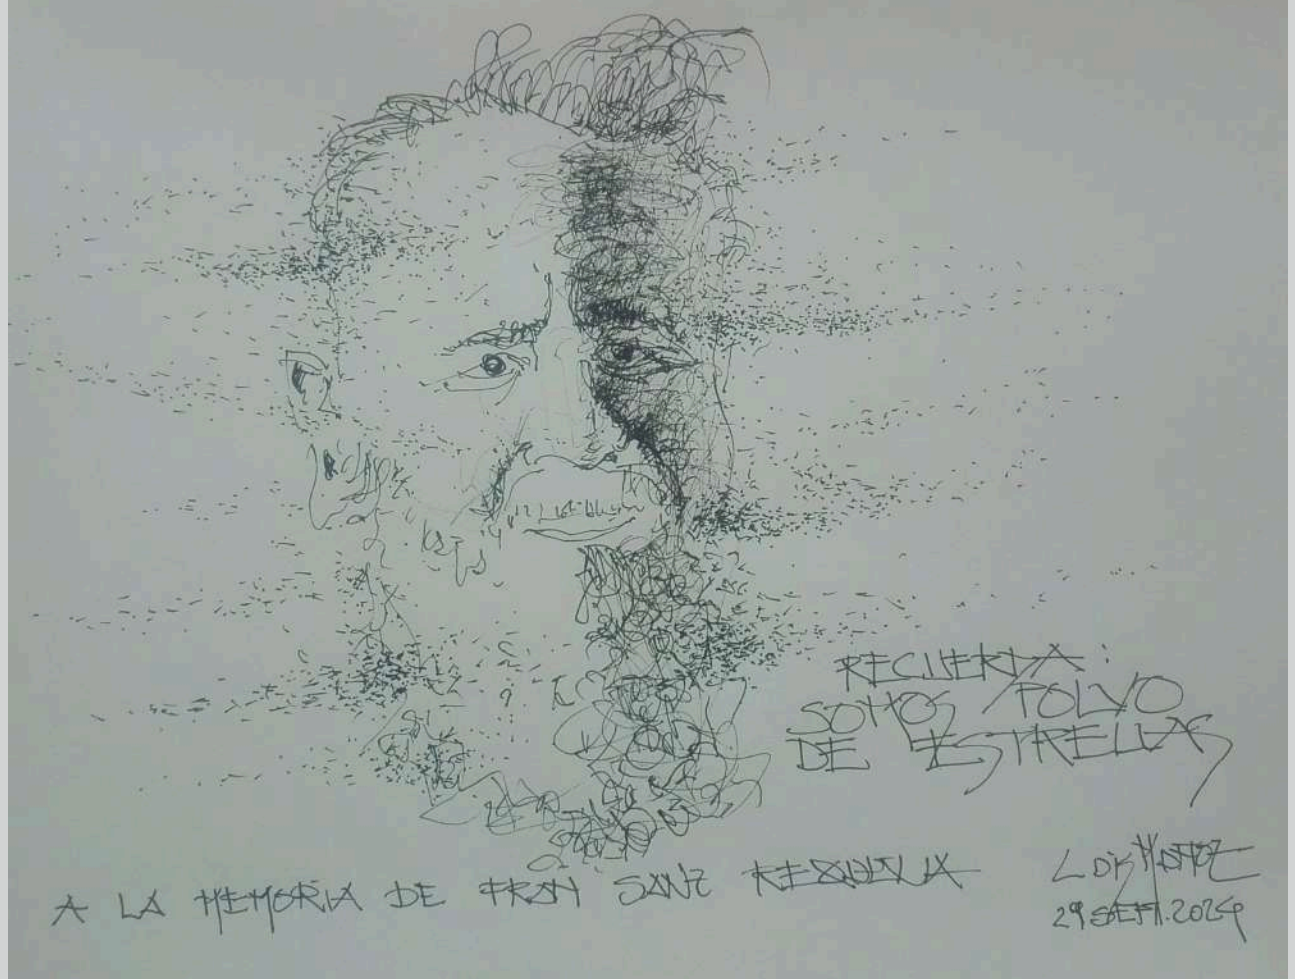 RECUERDA:
SOMOS POLVO
DE ESTRELLAS
A LA MEMORIA DE FRAN SANZ REQUENA
29 SEPT. 2024